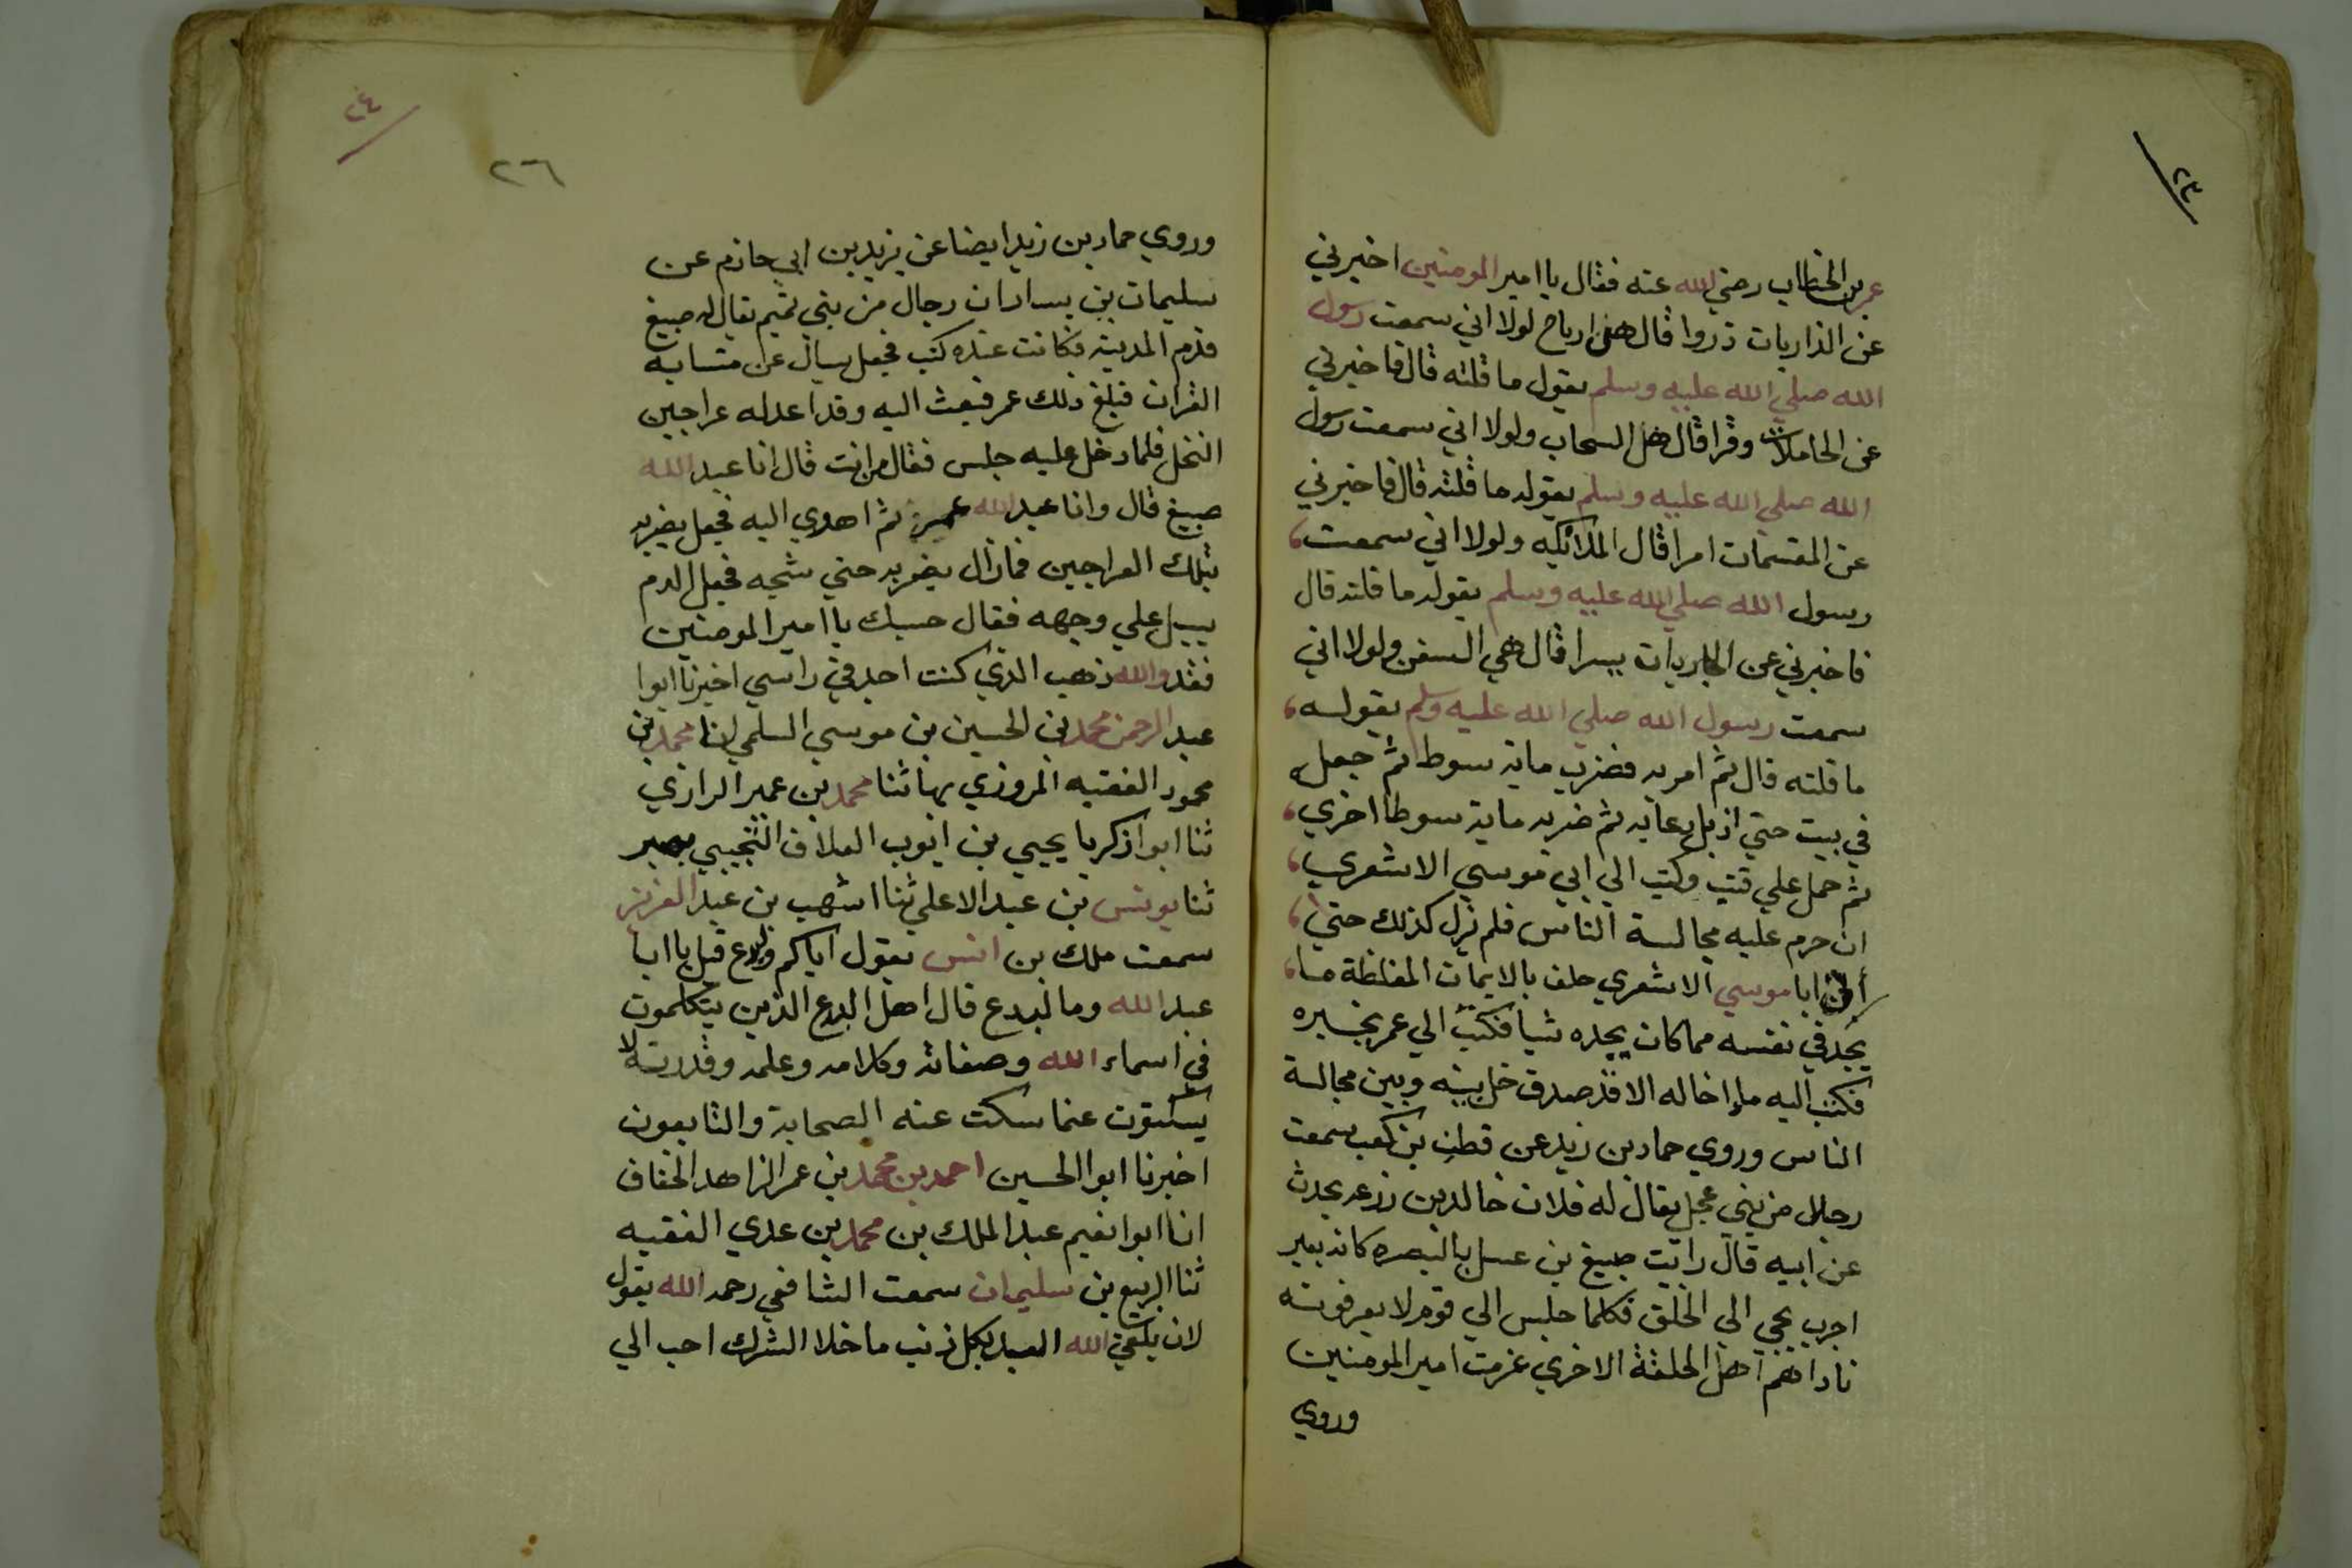 ٢٣
عمر بن الخطاب رضي الله عنه فقال يا امير المومنين اخبرني
عن الذاريات ذروا قال هي ارياح لولا اني سمعت رسول
الله صلي الله عليه وسلم يقول ما قلته قال فاخبرني
عن الحاملات وقرا قال هل السحاب ولولا اني سمعت رسول
الله صلي الله عليه وسلم يقوله ما قلته قال فاخبرني
عن المقسمات امرا قال الملائكه ولولا اني سمعت
رسول الله صلي الله عليه وسلم يقوله ما قلته قال
فاخبرني عن الجاريات يسرا قال هي السفن ولولا اني
سمعت رسول الله صلي الله عليه وسلم يقوله
ما قلته قال ثم امر به فضرب ماية سوط ثم جعله
في بيت حتي اذ بل دعا به ثم ضربه ماية سوطا اخري
ثم حمل علي قتب وكتب الي ابي موسي الاشعري
ان حرم عليه مجالسة الناس فلم يزل كذلك حتي
أتى ابا موسي الاشعري حلف بالايمان المغلظة ما
يجد في نفسه مما كان يجده شيا فكتب الي عمر يخبره
فكتب اليه ما اخاله الا قد صدق خل بينه وبين مجالسة
الناس وروي حماد بن زيد عن قطن بن كعب سمعت
رجلا من بني عجل يقال له فلان خالد بن زرعه يحدث
عن ابيه قال رايت صبيغ بن عسل بالبصره كانه بعير
اجرب يجي الي الحلق فكلما جلس الي قوم لا يعرفونه
ناداهم اهل الحلقة الاخري عزمت امير المومنين
وروي
٢٤
٢٦
وروي حماد بن زيد ايضا عن يزيد بن ابي حازم عن
سليمان بن يسار ان رجال من بني تميم يقال له صبيغ
قدم المدينه فكانت عنده كتب فجعل يسال عن متشابه
القران فبلغ ذلك عمر فبعث اليه وقد اعد له عراجين
النخل فلما دخل عليه جلس فقال من انت قال انا عبد الله
صبيغ قال وانا عبد الله عمر ثم اهوي اليه فجعل يضربه
بتلك العراجين فما زال يضربه حتي شجه فجعل الدم
يسيل علي وجهه فقال حسبك يا امير المومنين
فقد والله ذهب الذي كنت اجد في راسي اخبرنا ابوا
عبد الرحمن محمد بن الحسين بن موسي السلمي انا محمد بن
محمود الفقيه المروزي بها ثنا محمد بن عمير الرازي
ثنا ابوا زكريا يحيي بن ايوب العلاف التجيبي بمصر
ثنا يونس بن عبد الاعلي ثنا اشهب بن عبد العزيز
سمعت ملك بن انس يقول اياكم والبدع قيل يا ابا
عبد الله وما البدع قال اهل البدع الذين يتكلمون
في اسماء الله وصفاته وكلامه وعلمه وقدرته لا
يسكتون عنما سكت عنه الصحابة والتابعون
اخبرنا ابوا الحسين احمد بن محمد بن عمر الزاهد الخفاف
انا ابوا نعيم عبد الملك بن محمد بن عدي الفقيه
ثنا الربيع بن سليمان سمعت الشافعي رحمه الله يقول
لان يلقي الله العبد بكل ذنب ما خلا الشرك احب الي